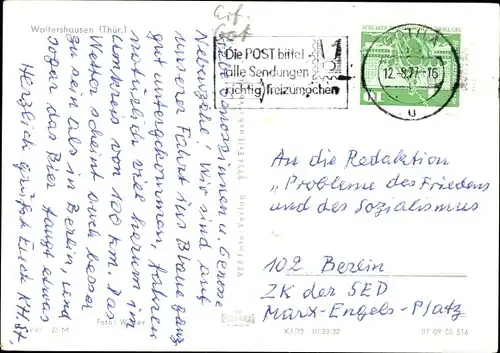 Waltershausen (Thür.)
Die POST bittet
alle Sendungen
richtig freizumachen
GOTHA
12.-8.77-16
u
Genossinnen u. Genossen
Wir sind auf
unserer Fahrt ins Blaue ganz
gut untergekommen, fahren
natürlich viel herum im
Umkreis von 100 km. Das
Wetter scheint auch besser
zu sein als in Berlin, und
sogar das Bier taugt etwas
Herzlich grüßt Euch KHSt.
An die Redaktion
„Probleme des Friedens
und des Sozialismus
102 Berlin
ZK der SED
Marx-Engels-Platz
Foto:
07 09 06 516